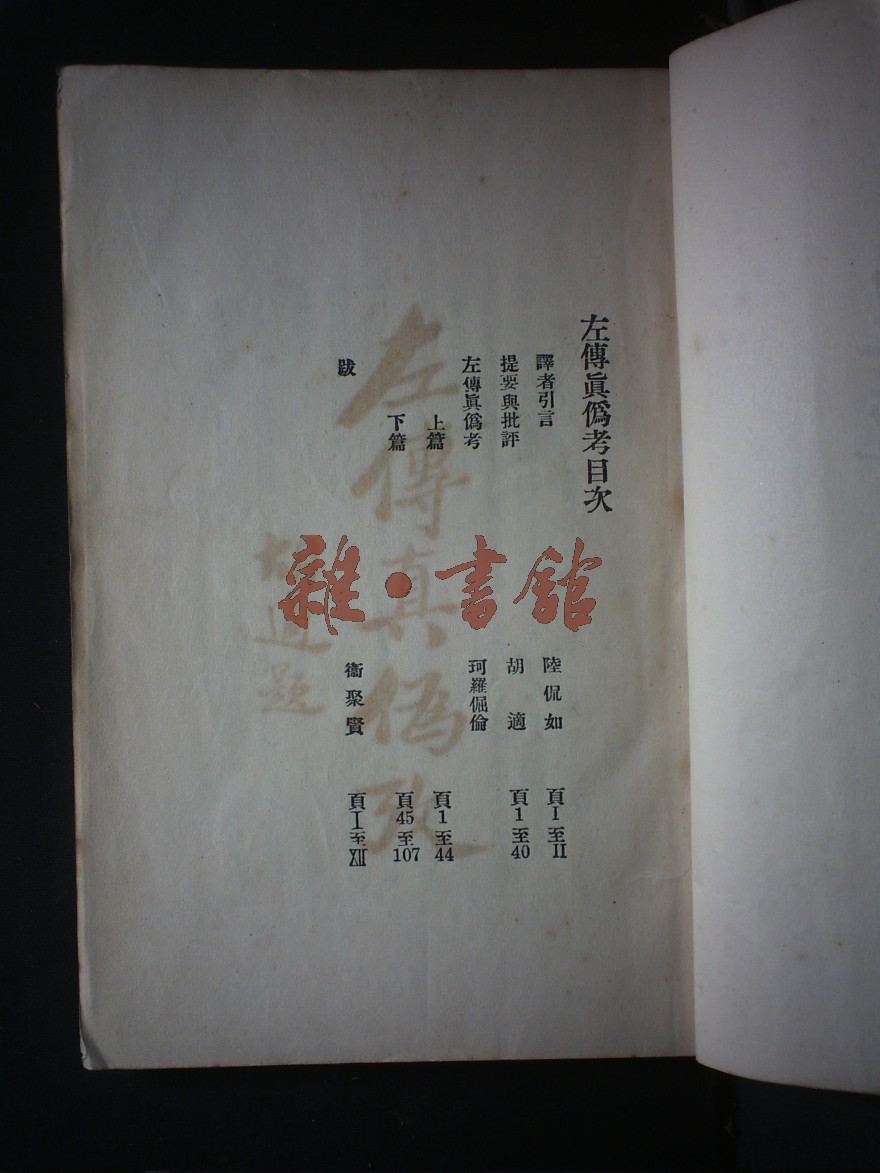 左傳眞僞考目次
譯者引言 陸侃如 頁I至II
提要與批評 胡適 頁1至40
左傳眞僞考 珂羅倔倫
上篇 頁1至44
下篇 頁45至107
跋 衞聚賢 頁I至
左傳真偽攷
胡適題
雜·書館